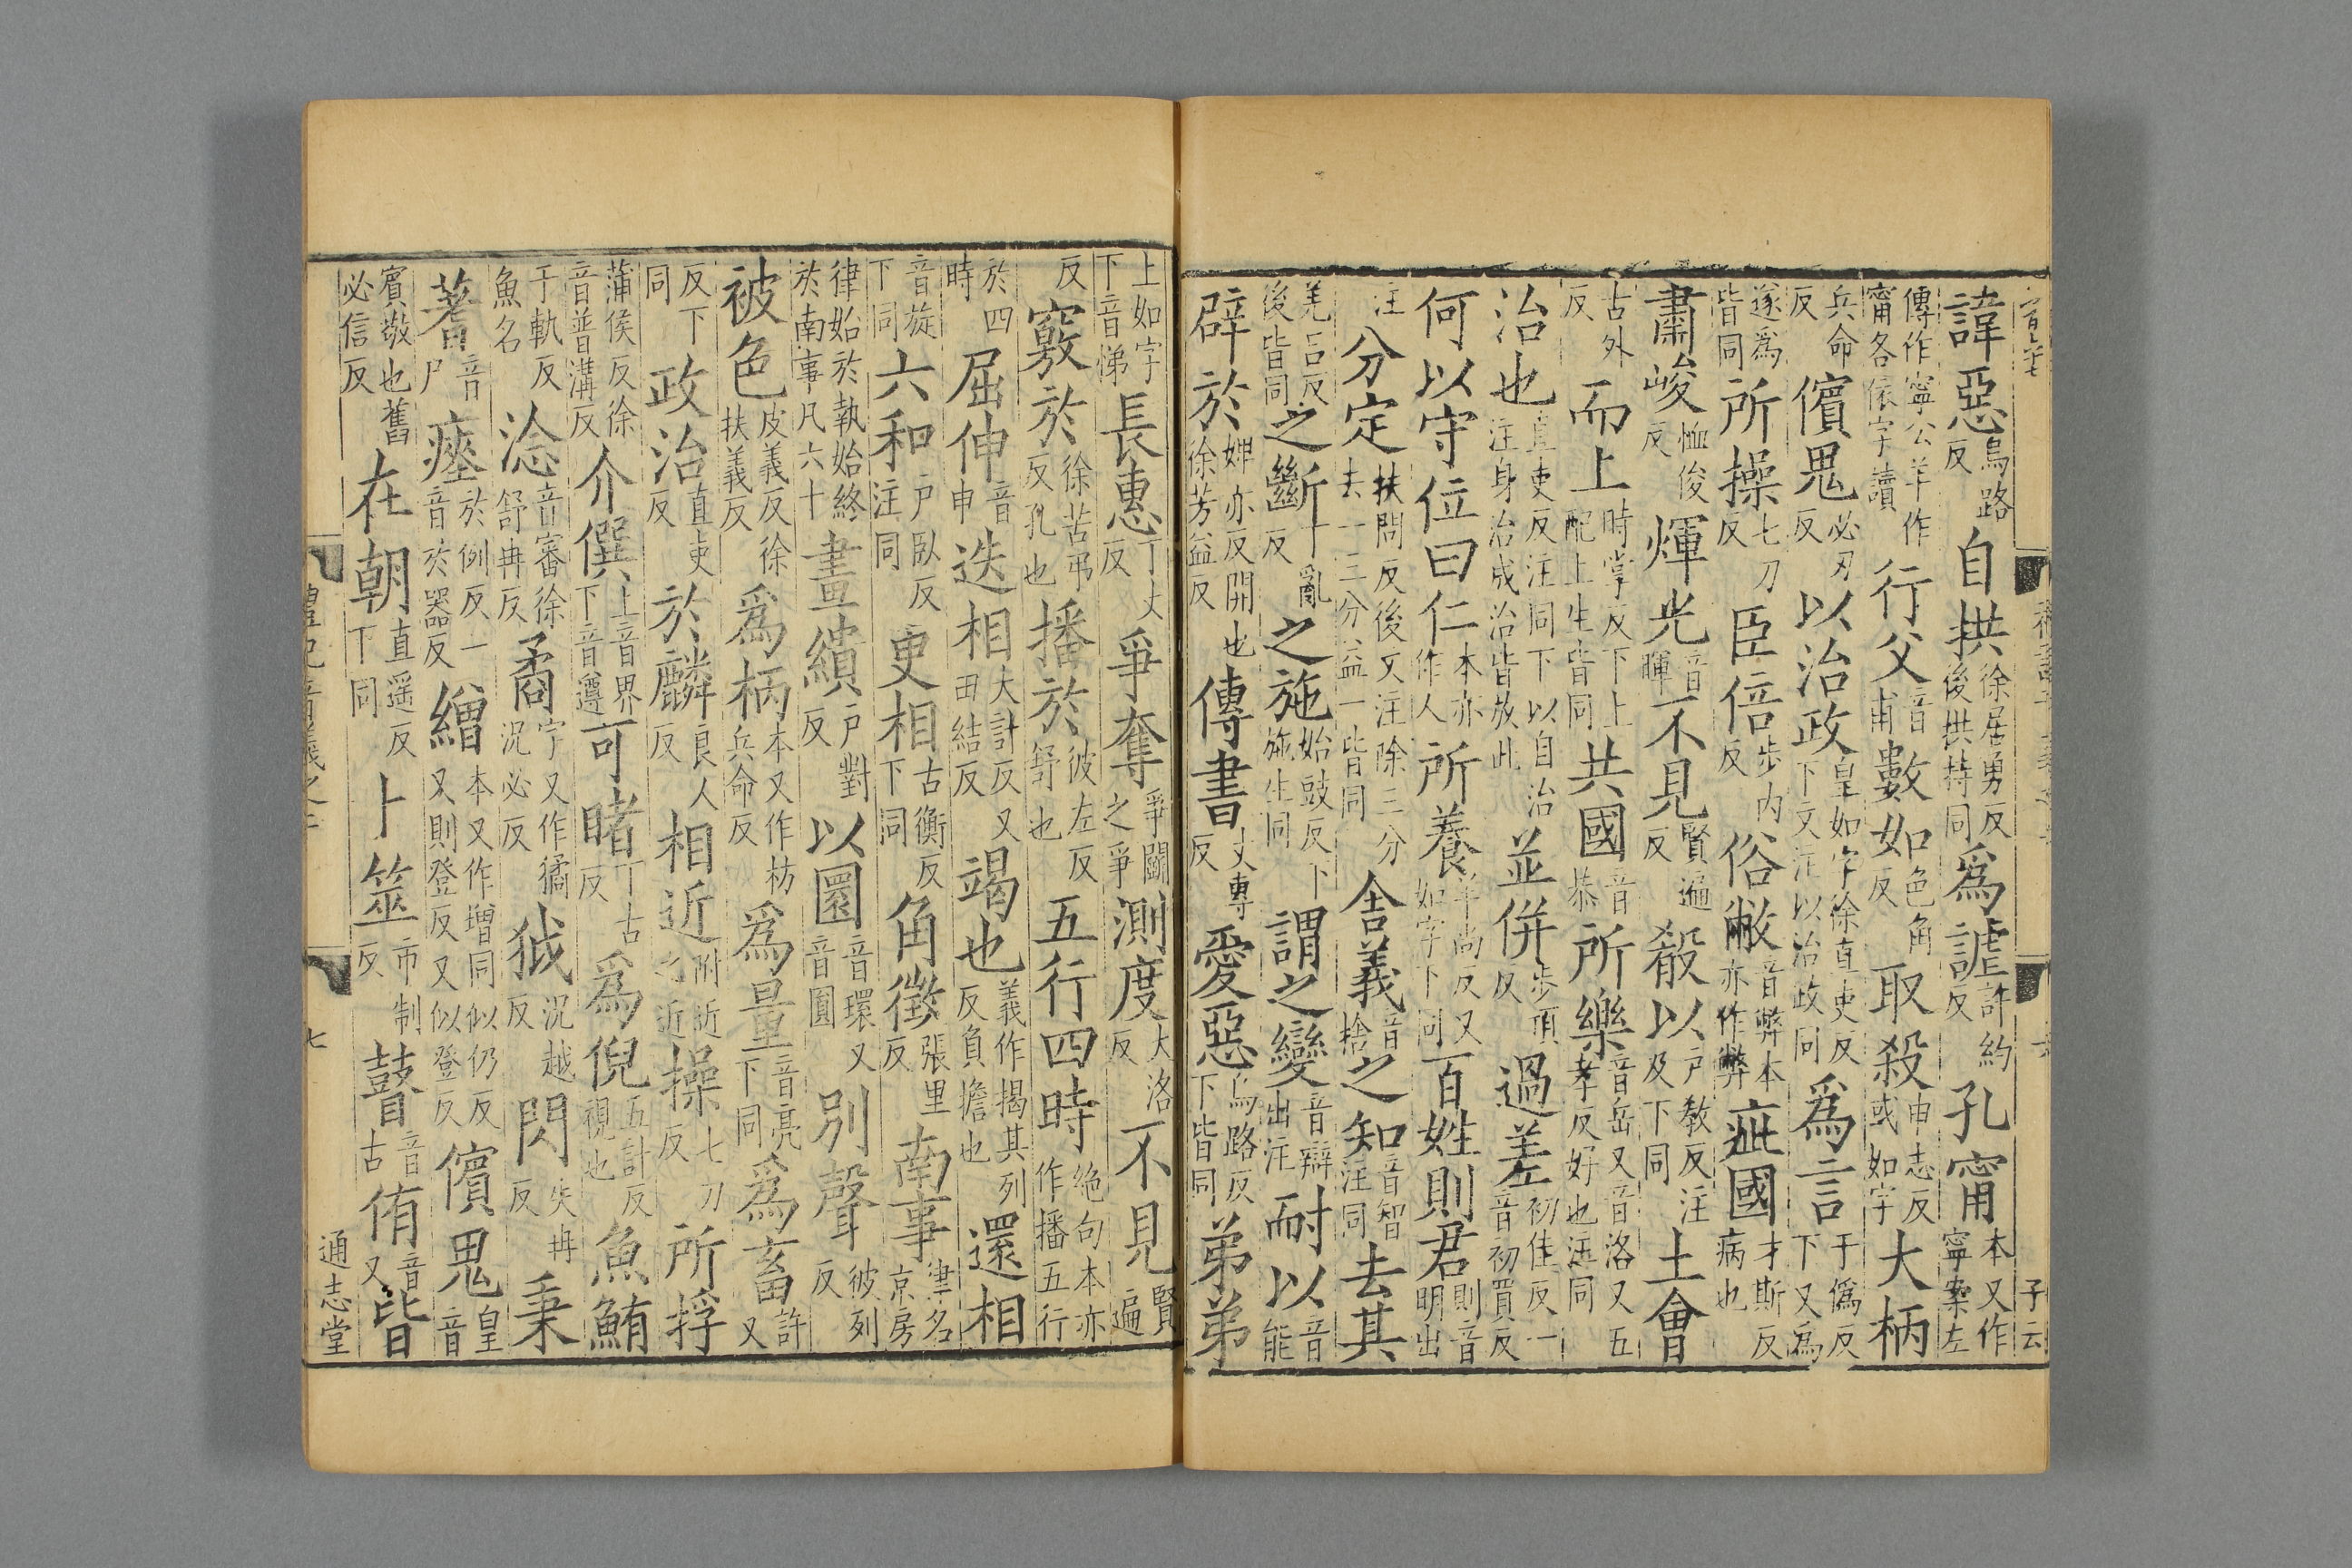 諱惡烏路反自拱徐居勇反後拱持同爲謔許約反孔甯本又作寧案左
傳作寧公羊作甯各依字讀行父音甫數如色角反取殺申志反或如字大柄
兵命反儐鬼必刃反以治政皇如字徐直吏反下文注以治政同爲言于僞反下又爲
遂爲皆同所操七刀反臣倍步内反俗敝音弊本亦作弊疵國才斯反病也
肅峻恤俊反煇光音暉不見賢遍反殽以户教反注及下同土會
古外反而上時掌反下上配上生皆同共國音恭所樂音岳又音洛又五孝反好也注同
治也直吏反注同下以自治注身治成治皆放此並併步頂反過差初佳反一音初買反
何以守位曰仁本亦作人所養羊尚反又如字下同百姓則君則音明出
注分定扶問反後文注除三分去一三分益一皆同舍義音捨之知音智注同去其
羌呂反後皆同之斷丁亂反之施始豉反下施生同謂之變音辯出注耐以音能
辟於婢亦反開也徐芳益反傳書丈專反愛惡烏路反下皆同弟弟
子云
上如字下音悌長惠丁丈反爭奪爭鬭之爭測度大洛反不見賢遍
反竅於徐苦弔反孔也播於彼左反舒也五行四時絶句本亦作播五行
於四時屈伸音申迭相大計反又田結反竭也義作揭其列反負擔也還相
音旋下同六和户臥反注同更相古衡反下同角徵張里反南事律名京房
律始於執始終於南事凡六十畫繢户對反以圜音環又音圓别聲彼列反
被色皮義反徐扶義反爲柄本又作枋兵命反爲量音亮下同爲畜許又
反下同政治直吏反於麟良人反相近附近之近操七刀反所捊
蒲侯反徐音普溝反介僎上音界下音遵可睹丁古反爲倪五計反視也魚鮪
于軌反魚名淰音審徐舒冉反矞字又作獝況必反狘況越反閃失冉反秉
蓍音尸瘞於例反一音於器反繒本又作增同似仍反又則登反又似登反儐鬼皇音
賓敬也舊必信反在朝直遥反下同卜筮市制反瞽音古侑音又皆
七
通志堂